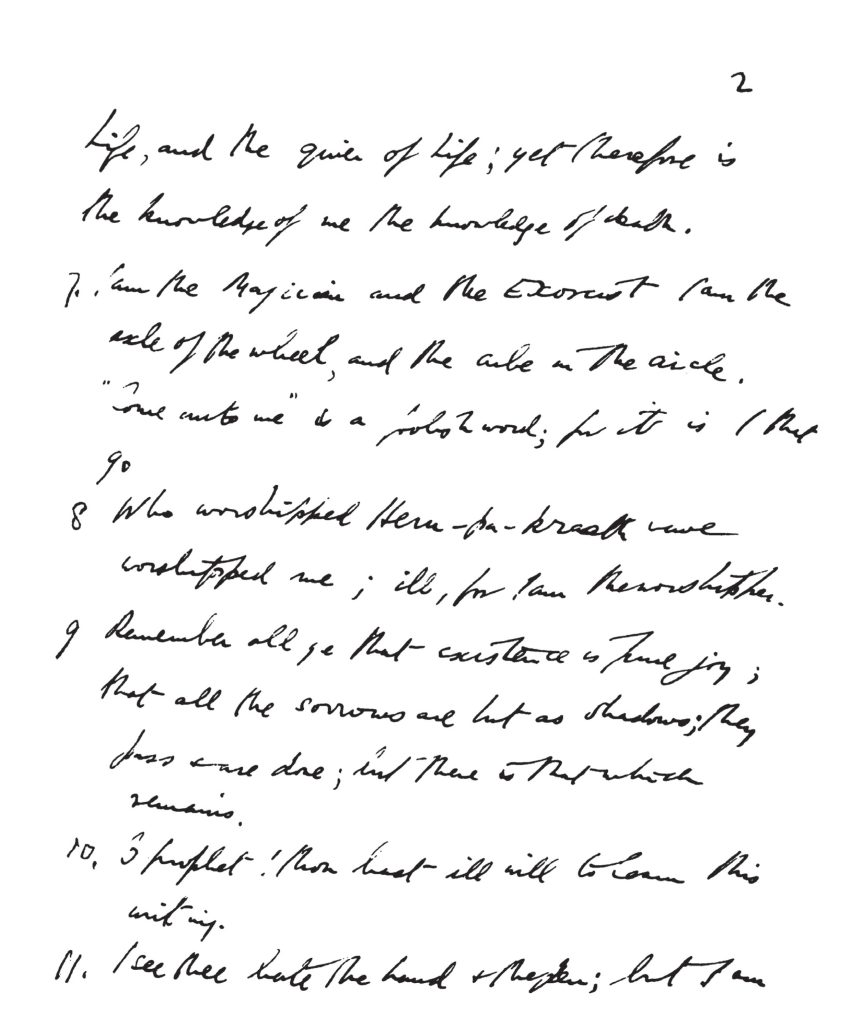 2
Life, and the giver of Life; yet therefore is
the knowledge of me the knowledge of death.
7. I am the Magician and the Exorcist I am the
axle of the wheel, and the cube in the circle.
"Come unto me" is a foolish word; for it is I that
go
8 Who worshipped Heru-pa-kraath have
worshipped me; ill, for I am the worshipper.
9 Remember all ye that existence is pure joy;
that all the sorrows are but as shadows; they
pass & are done; but there is that which
remains.
10. O prophet! thou hast ill will to learn this
writing.
11. I see thee hate the hand & the pen; but I am